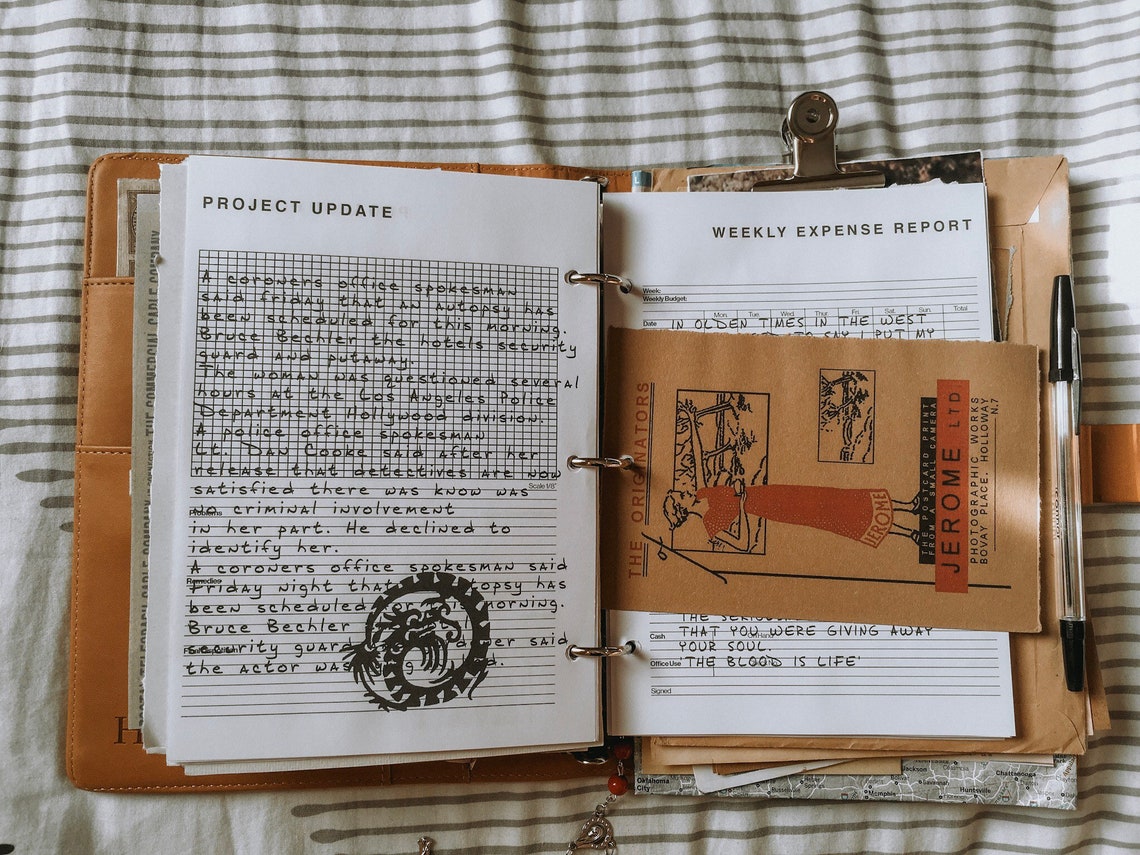 PROJECT UPDATE
A coroners office spokesman
said friday that an autopsy has
been scheduled for this morning.
Bruce Bechler the hotels security
guard and putaway.
The woman was questioned several
hours at the Los Angeles Police
Department Hollywood division.
A police office spokesman
Lt. Dan Cooke said after her
release that detectives are now
Scale 1/8"
satisfied there was know was
Problems
criminal involvement
in her part. He declined to
identify her.
A coroners office spokesman said
Remedies
Friday night that topsy has
been scheduled morning.
Bruce Bechler
security guard said
the actor was
WEEKLY EXPENSE REPORT
Week:
Weekly Budget:
Mon. Tue. Wed. Thur. Fri. Sat. Sun. Total
Date
IN OLDEN TIMES IN THE WEST
TO SAY I PUT MY
THE ORIGINATORS
JEROME
THE POSTCARD PRINT
FROM A SMALL CAMERA
JEROME LTD
PHOTOGRAPHIC WORKS
BOVAY PLACE. HOLLOWAY
N.7
THE
Cash
THAT YOU WERE GIVING AWAY
YOUR SOUL.
Office Use
'THE BLOOD IS LIFE'
Signed
THE COMMERCIAL CABLE COMPANY
H
Oklahoma
City
Jackson
Memphis
Savannah
Huntsville
Chattanooga
Springs